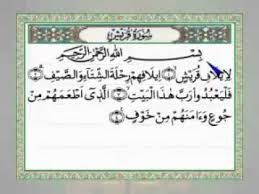 سُورَةُ قُرَيْشٍ
بِسْمِ اللَّهِ الرَّحْمَٰنِ الرَّحِيمِ
لِإِيلَافِ قُرَيْشٍ ۝ إِيلَافِهِمْ رِحْلَةَ الشِّتَاءِ وَالصَّيْفِ ۝
فَلْيَعْبُدُوا رَبَّ هَٰذَا الْبَيْتِ ۝ الَّذِي أَطْعَمَهُم مِّن
جُوعٍ وَءَامَنَهُم مِّنْ خَوْفٍ ۝